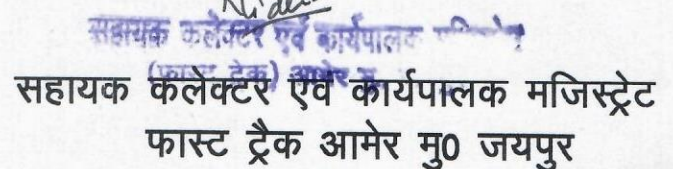 सहायक कलेक्टर एवं कार्यपालक
(फास्ट ट्रेक) आमेर मु.
सहायक कलेक्टर एवं कार्यपालक मजिस्ट्रेट
फास्ट ट्रैक आमेर मु0 जयपुर